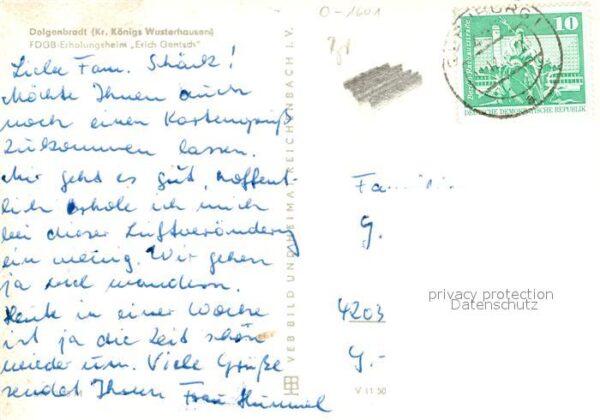 Dolgenbrodt (Kr. Königs Wusterhausen)
FDGB-Erholungsheim „Erich Gentsch"
O-1601
Liebe Fam. Schärk!
Möchte Ihnen auch
noch einen Kartengruß
zukommen lassen.
Mir geht es gut, hoffent-
lich erhole ich mich
bei dieser Luftveränderung
ein wenig. Wir gehen
ja viel wandern.
Heute in einer Woche
ist ja die Zeit schon
wieder um. Viele Grüße
sendet Ihnen Frau Hummel
VEB BILD UND HEIMAT REICHENBACH I. V.
V 11 50
10
DEUTSCHE DEMOKRATISCHE REPUBLIK
Famili
G.
4203
G.-
privacy protection
Datenschutz